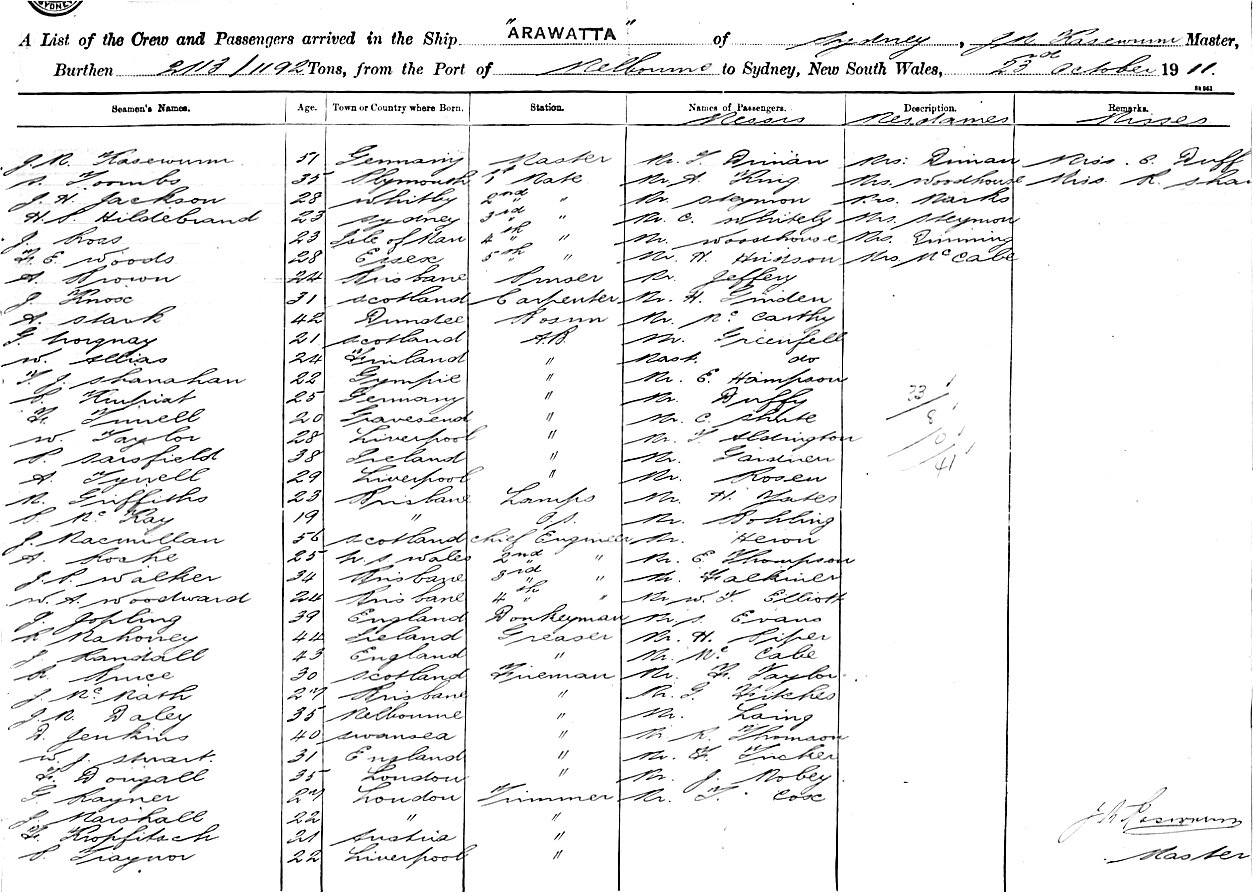 SYDNEY
A List of the Crew and Passengers arrived in the Ship "ARAWATTA" of Sydney, Master,
Burthen 2113/1192 Tons, from the Port of Melbourne to Sydney, New South Wales, 23rd October 1911.
Seamen's Names. Age. Town or Country where Born. Station. Names of Passengers. Description. Remarks.
Messrs Mesdames Misses
51 Germany Master Mr. Mrs. Miss. E. Duff
Toombs 35 Plymouth 1st Mate Mr. A. King Mrs. Woodhouse Miss. R. Sha
J. H. Jackson 28 Whitby 2nd " Mr Seymon Mrs. Marks
H. P. Hildebrand 23 Sydney 3rd " Mr. C. Whitely Mrs. Seymon
J. 23 Isle of Man 4th " Mr. Woodhouse Mrs.
F. E. Woods 28 Essex 5th " Mr. H. Hudson Mrs McCabe
A. Brown 24 Brisbane Purser Mr. Jeffery
J. Knox 31 Scotland Carpenter Mr. H.
A. Stark 42 Dundee Bosun Mr. McCarthy
21 Scotland A.B. Mr. Greenfell
W. Allias 24 Finland " Mast. do
T. J. Shanahan 22 Gympie " Mr. E. Hampson
25 Germany " Mr. Duffy 33
20 Gravesend " Mr. C. Shute 8
W. Taylor 28 Liverpool " Mr. T. Aldington
P. Sarsfield 38 Ireland " Mr. Gardner 41
A. Tyrell 29 Liverpool " Mr. Rosen
Griffiths 23 Brisbane Lamps Mr. H. Yates
McKay 19 " O.S. Mr. Bohling
J. Macmillan 56 Scotland Chief Engineer Mr. Heron
A. 25 N. S. Wales 2nd " Mr. E. Thompson
J. P. Walker 34 Brisbane 3rd " Mr. Falkiner
W. A. Woodward 24 Brisbane 4th " Mr W. T. Elliott
J. Jopling 39 England Donkeyman Mr. S. Evans
Mahoney 44 Ireland Greaser Mr. H. Piper
J. Randall 43 England " Mr. McCabe
Bruce 30 Scotland Fireman Mr. F. Taylor
J. McMath 27 Brisbane " Mr. Hitches
J. R. Daley 35 Melbourne " Mr. Laing
D. Jenkins 40 Swansea " Mr R. Thomson
W. J. Stuart 31 England " Mr. F. Tucker
F. Dougall 35 London " Mr. J. Robey
G. Rayner 27 London Trimmer Mr. T. Cox
J. Marshall 22 " "
21 Austria "
P. Traynor 22 Liverpool " Master